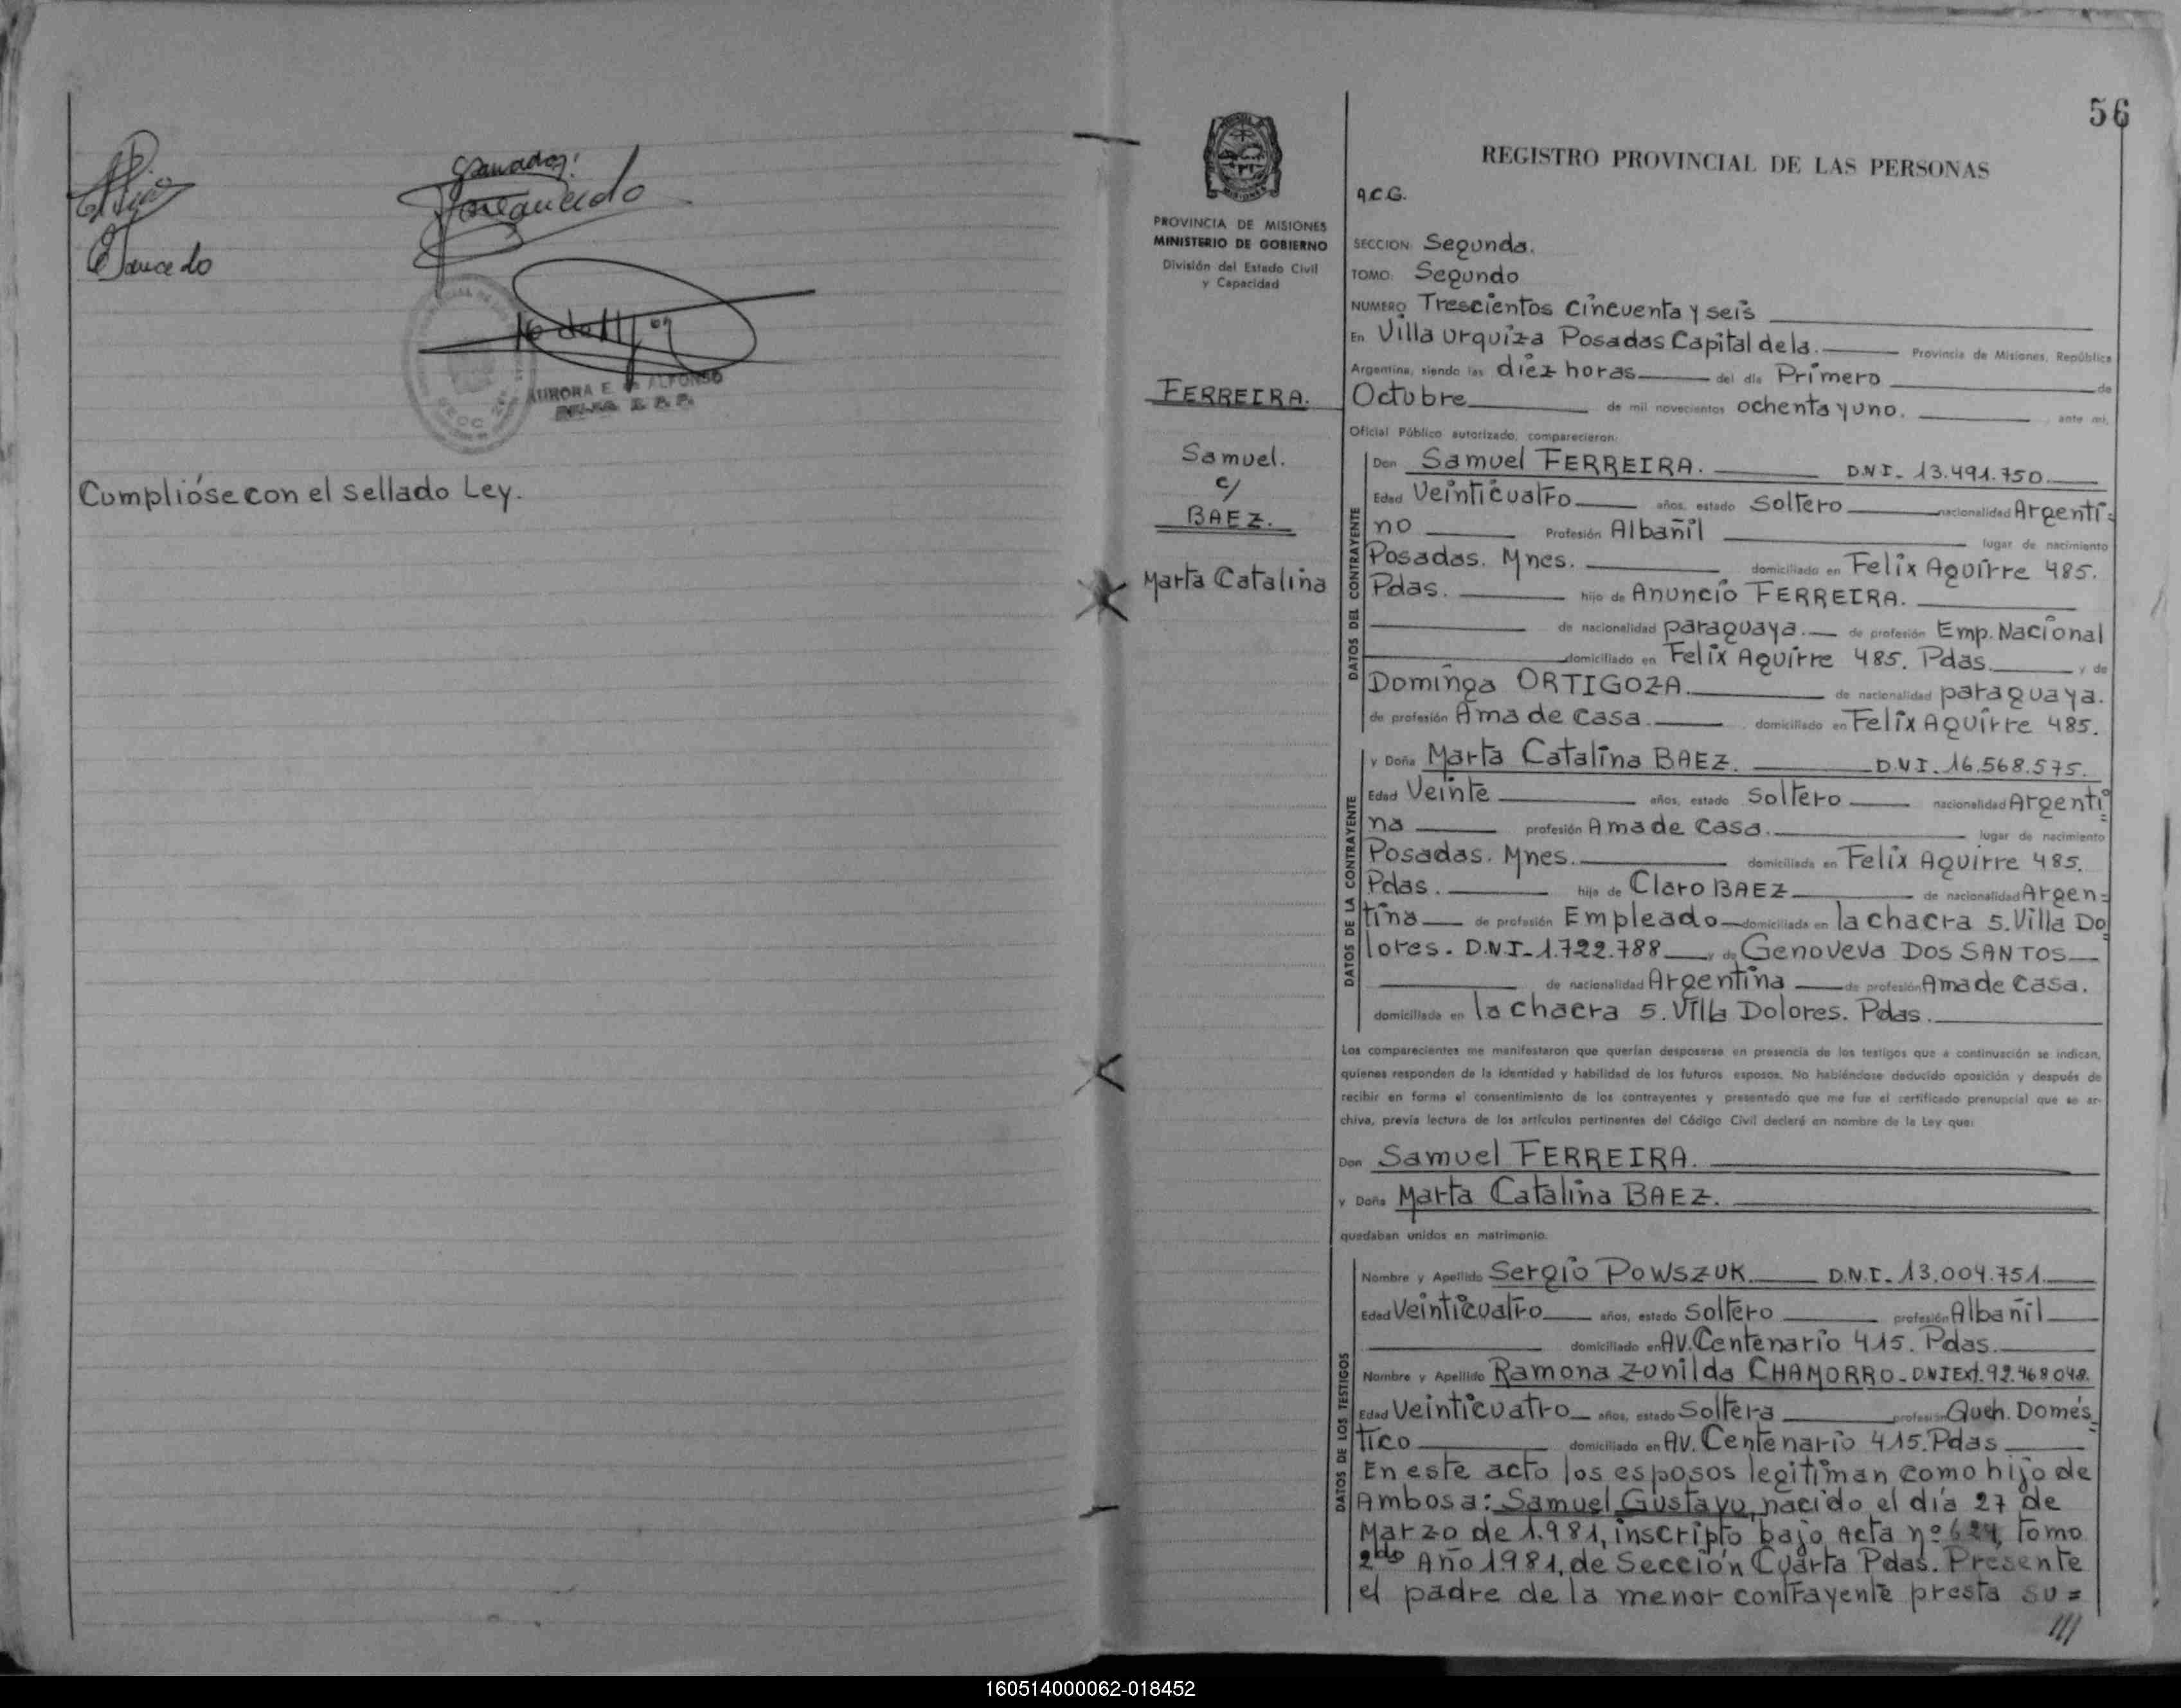 Saucedo
Cumplióse con el sellado Ley.
AURORA E. de ALFONSO
56
REGISTRO PROVINCIAL DE LAS PERSONAS
A.C.G.
PROVINCIA DE MISIONES
MINISTERIO DE GOBIERNO
División del Estado Civil
y Capacidad
FERREIRA.
Samuel.
c/
BAEZ.
Marta Catalina
SECCION: Segunda.
TOMO: Segundo
NUMERO Trescientos cincuenta y seis
En Villa Urquiza Posadas Capital de la. Provincia de Misiones, República
Argentina, siendo las diez horas del día Primero de
Octubre de mil novecientos ochenta y uno. ante mí,
Oficial Público autorizado, comparecieron:
DATOS DEL CONTRAYENTE
Don Samuel FERREIRA. D.N.I. 13.491.750.
Edad Veinticuatro años, estado Soltero nacionalidad Argenti=
no Profesión Albañil lugar de nacimiento
Posadas. Mnes. domiciliado en Felix Aguirre 485.
Pdas. hijo de Anuncio FERREIRA.
de nacionalidad paraguaya. de profesión Emp. Nacional
domiciliado en Felix Aguirre 485. Pdas. y de
Dominga ORTIGOZA. de nacionalidad paraguaya.
de profesión Ama de casa. domiciliado en Felix Aguirre 485.
DATOS DE LA CONTRAYENTE
y Doña Marta Catalina BAEZ. D.N.I. 16.568.575.
Edad Veinte años, estado Soltero nacionalidad Argenti=
na profesión Ama de casa. lugar de nacimiento
Posadas. Mnes. domiciliada en Felix Aguirre 485.
Pdas. hija de Claro BAEZ de nacionalidad Argen=
tina de profesión Empleado domiciliado en la chacra 5. Villa Do
lores. D.N.I. 1.722.788 y de Genoveva DOS SANTOS
de nacionalidad Argentina de profesión Ama de casa.
domiciliada en la chacra 5. Villa Dolores. Pdas.
Los comparecientes me manifestaron que querían desposarse en presencia de los testigos que a continuación se indican,
quienes responden de la identidad y habilidad de los futuros esposos. No habiéndose deducido oposición y después de
recibir en forma el consentimiento de los contrayentes y presentado que me fue el certificado prenupcial que se ar-
chiva, previa lectura de los artículos pertinentes del Código Civil declaré en nombre de la Ley que:
Don Samuel FERREIRA.
y Doña Marta Catalina BAEZ.
quedaban unidos en matrimonio.
DATOS DE LOS TESTIGOS
Nombre y Apellido Sergio POWSZUK. D.N.I. 13.004.751.
Edad Veinticuatro años, estado Soltero profesión Albañil
domiciliado en AV. Centenario 415. Pdas.
Nombre y Apellido Ramona Zunilda CHAMORRO. DNIExt. 92.468.048.
Edad Veinticuatro años, estado Soltera profesión Queh. Domés
tico domiciliado en AV. Centenario 415. Pdas
En este acto los esposos legitiman como hijo de
Ambos a: Samuel Gustavo, nacido el día 27 de
Marzo de 1.981, inscripto bajo Acta nº Tomo
2do Año 1981, de Sección Cuarta Pdas. Presente
el padre de la menor contrayente presta su =
///
160514000062-018452